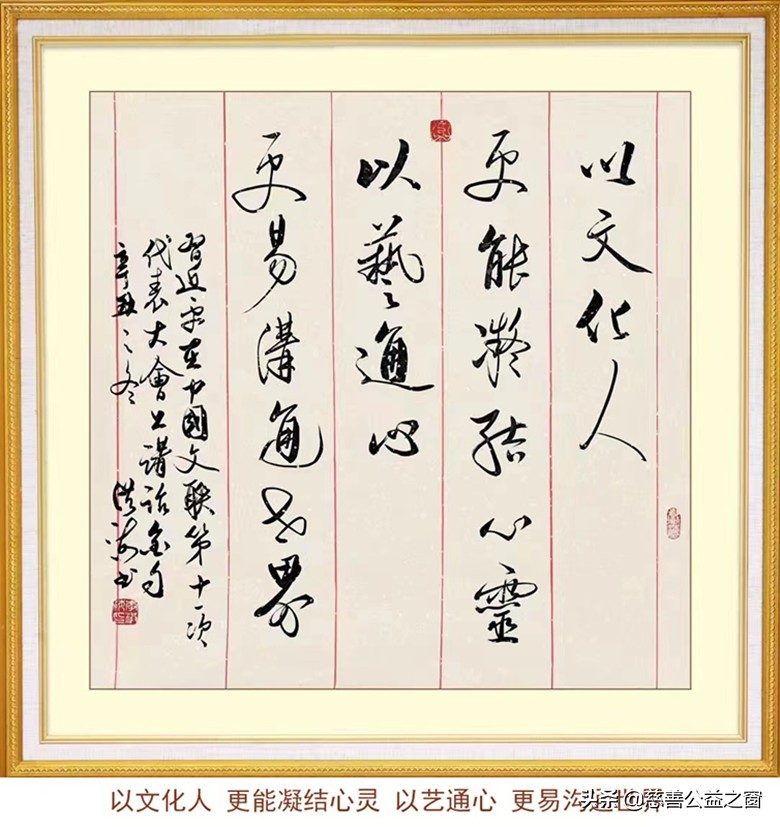 以文化人
更能凝结心靈
以藝通心
更易溝通世界
習近平在中國文联第十一次
代表大會上講話金句
辛丑之冬
洪海书
以文化人 更能凝结心灵 以艺通心 更易沟通世界
头条@慈善公益之窗